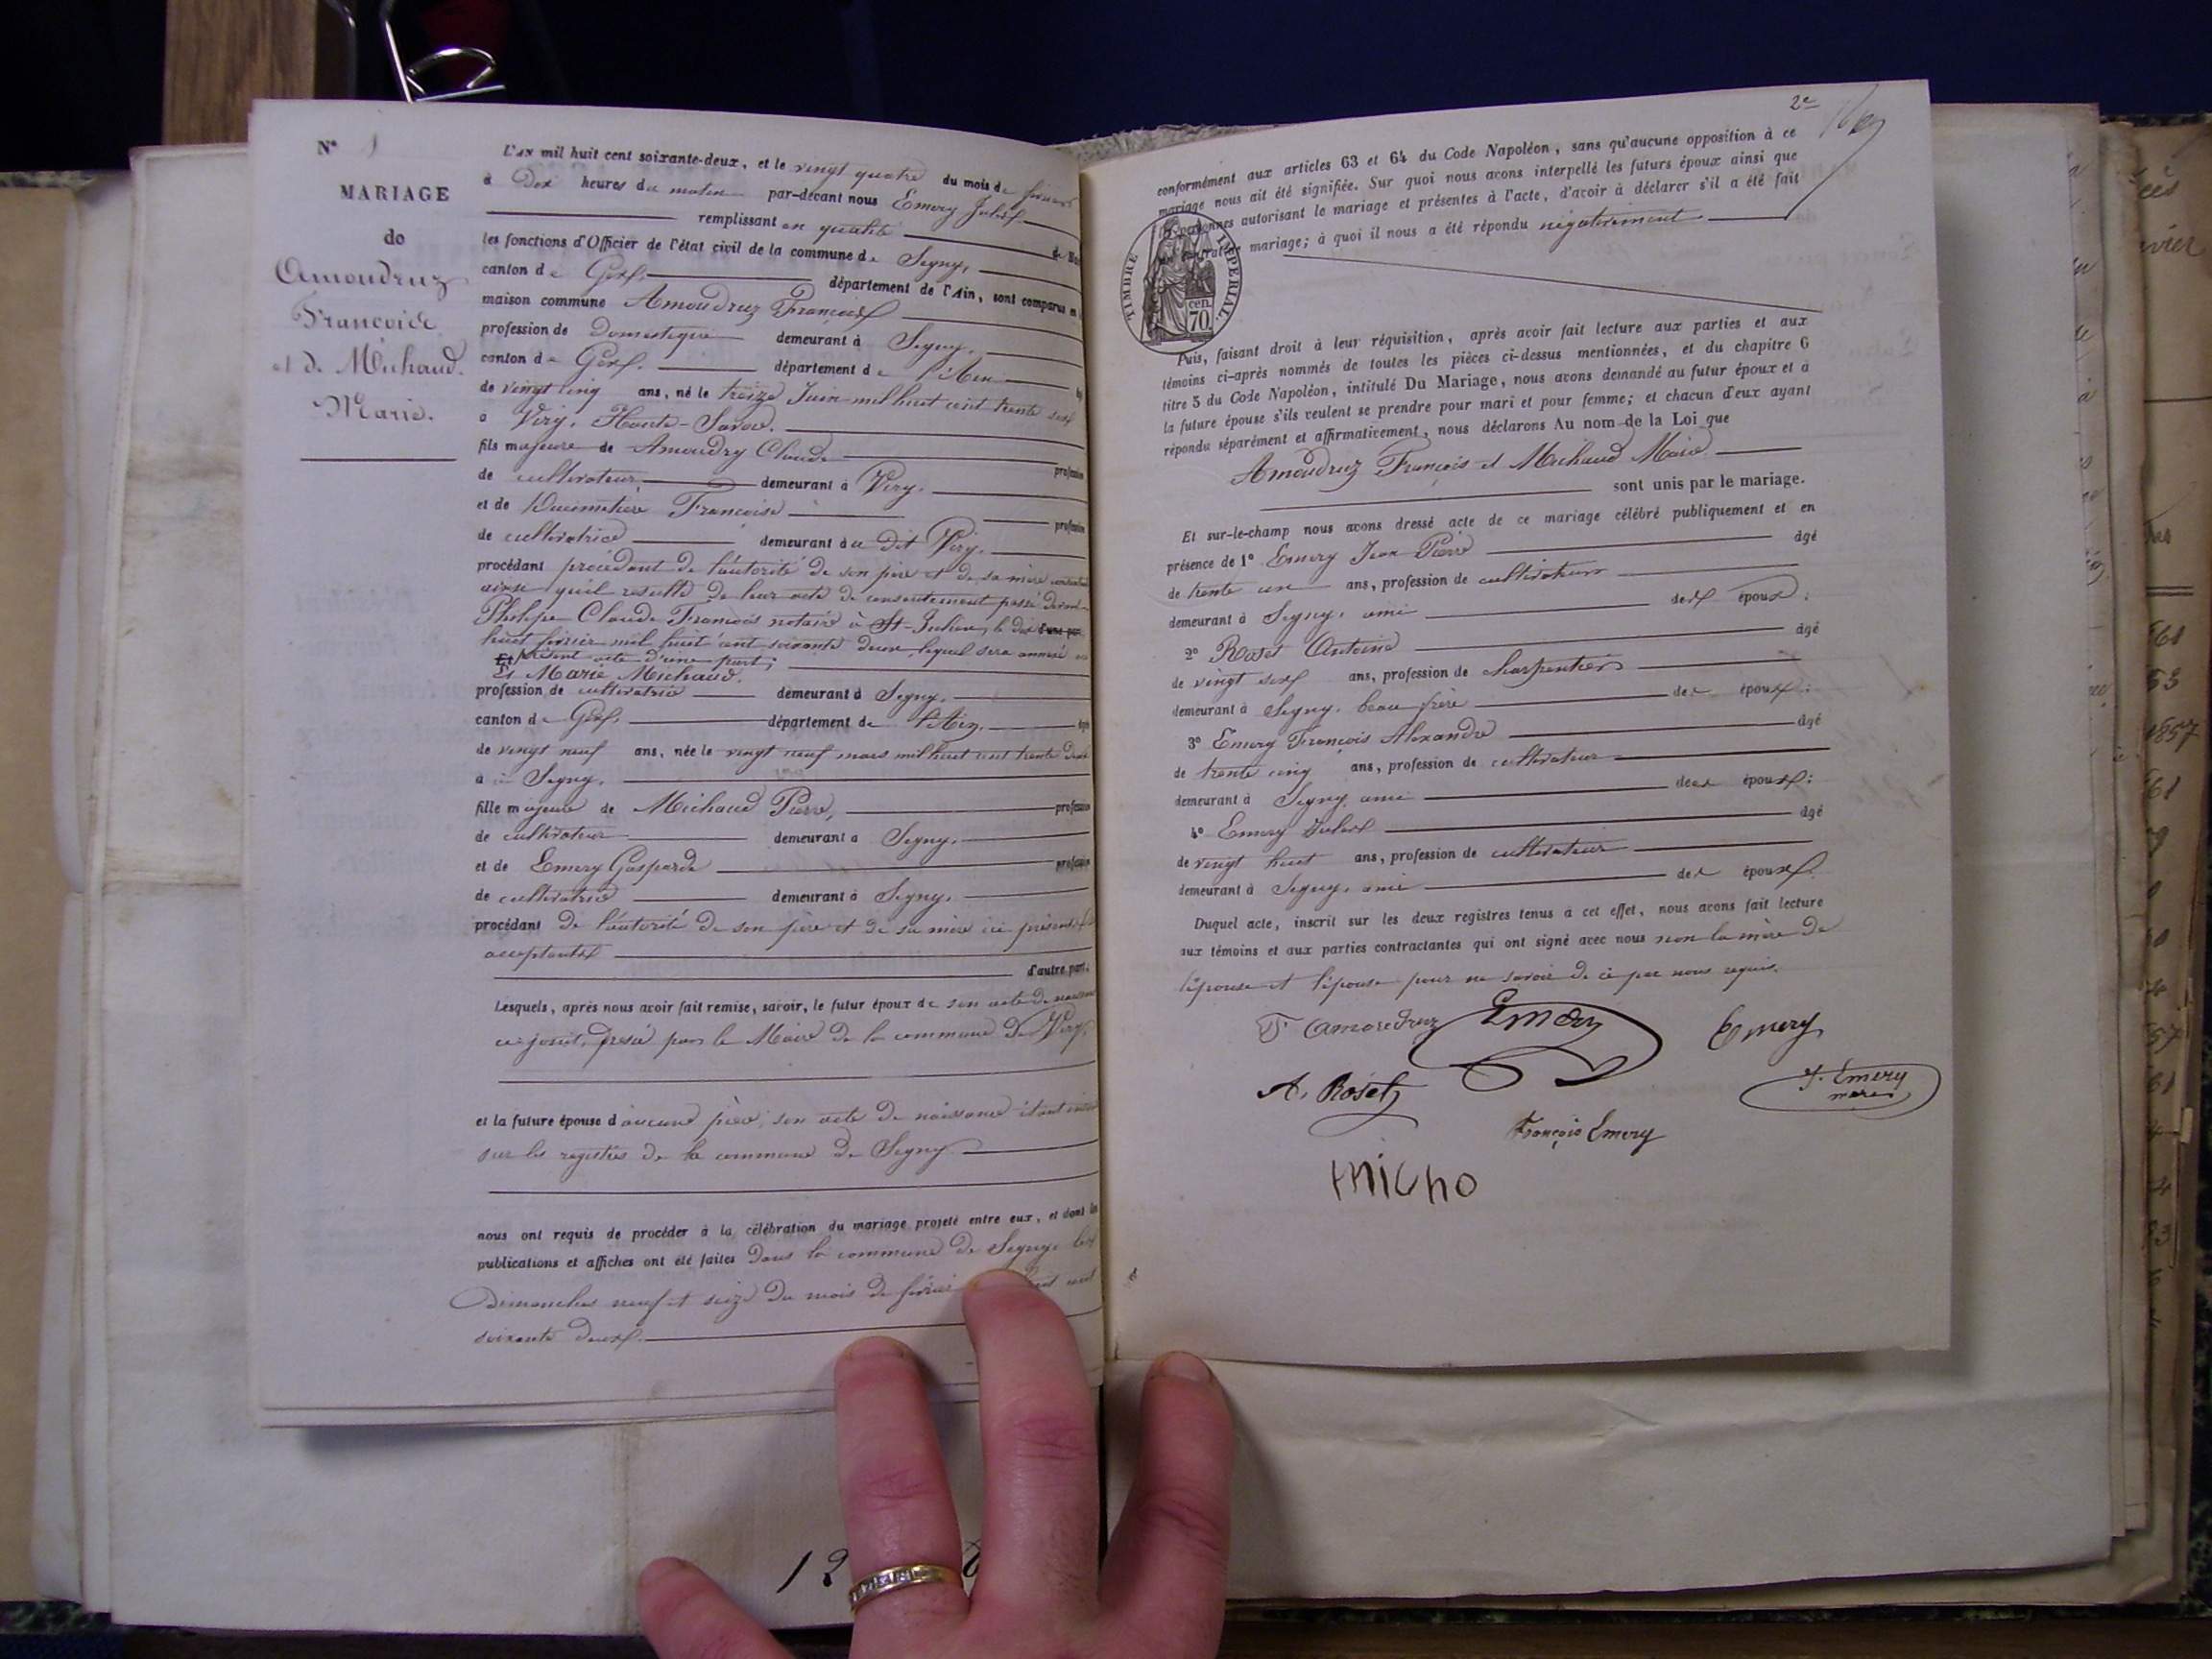 N° 1
MARIAGE
de
Amoudruz
François
et de Michaud
Marie.
L'AN mil huit cent soixante-deux, et le vingt quatre du mois de février
à Dix heures du matin par-devant nous Emery Julien
remplissant en qualité de Maire
les fonctions d'Officier de l'état civil de la commune de Segny,
canton de Gex, département de l'Ain, sont comparus en
maison commune Amoudruz François
profession de domestique demeurant à Segny,
canton de Gex. département de l'Ain
de vingt cinq ans, né le treize Juin mil huit cent trente six
à Viry, Haute-Savoie.
fils majeure de Amoudry Claude profession
de cultivateur demeurant à Viry.
et de Françoise profession
de cultivatrice demeurant au dit Viry.
procédant procédant de l'autorité de son père et de sa mère
ainsi qu'il résulte de leur acte de consentement passé devant
Philippe Claude François notaire à St-Julien, le dix d'une part
huit février mil huit cent soixante deux, lequel sera annexé au
Et présent acte d'une part;
Et Marie Michaud.
profession de cultivatrice demeurant à Segny,
canton de Gex, département de l'Ain, âgée
de vingt neuf ans, née le vingt neuf mars mil huit cent trente deux
à Segny,
fille majeure de Michaud Pierre, profession
de cultivateur demeurant à Segny,
et de Emery Gasparde profession
de cultivatrice demeurant à Segny,
procédant de l'autorité de son père et de sa mère ici présents et
acceptants
d'autre part.
Lesquels, après nous avoir fait remise, savoir, le futur époux de son acte de naissance
ci-joint, par le Maire de la commune de Viry,
et la future épouse d'aucune pièce, son acte de naissance étant inscrit
sur les registres de la commune de Segny
nous ont requis de procéder à la célébration du mariage projeté entre eux, et dont les
publications et affiches ont été faites dans la commune de Segny, les
Dimanches neuf et seize du mois de février huit cent
soixante deux.
12
2e
conformément aux articles 63 et 64 du Code Napoléon, sans qu'aucune opposition à ce
mariage nous ait été signifiée. Sur quoi nous avons interpellé les futurs époux ainsi que
les personnes autorisant le mariage et présentes à l'acte, d'avoir à déclarer s'il a été fait
un contrat de mariage; à quoi il nous a été répondu négativement.
TIMBRE IMPERIAL
70 cen.
Puis, faisant droit à leur réquisition, après avoir fait lecture aux parties et aux
témoins ci-après nommés de toutes les pièces ci-dessus mentionnées, et du chapitre 6
titre 5 du Code Napoléon, intitulé Du Mariage, nous avons demandé au futur époux et à
la future épouse s'ils veulent se prendre pour mari et pour femme; et chacun d'eux ayant
répondu séparément et affirmativement, nous déclarons Au nom de la Loi que
Amoudruz François et Michaud Marie
sont unis par le mariage.
Et sur-le-champ nous avons dressé acte de ce mariage célébré publiquement et en
présence de 1° Emery Jean Pierre âgé
de trente un ans, profession de cultivateur
demeurant à Segny, ami des époux;
2° Roset Antoine âgé
de vingt six ans, profession de charpentier
demeurant à Segny, beau frère des époux;
3° Emery François Alexandre âgé
de trente cinq ans, profession de cultivateur
demeurant à Segny, ami des époux;
4° Emery Julien âgé
de vingt huit ans, profession de cultivateur
demeurant à Segny, ami des époux.
Duquel acte, inscrit sur les deux registres tenus à cet effet, nous avons fait lecture
aux témoins et aux parties contractantes qui ont signé avec nous non la mère de
l'épouse et l'épouse pour ne savoir de ce par nous requis.
F Amoudruz Emery Emery
A. Roset J. Emery
maire
François Emery
micho